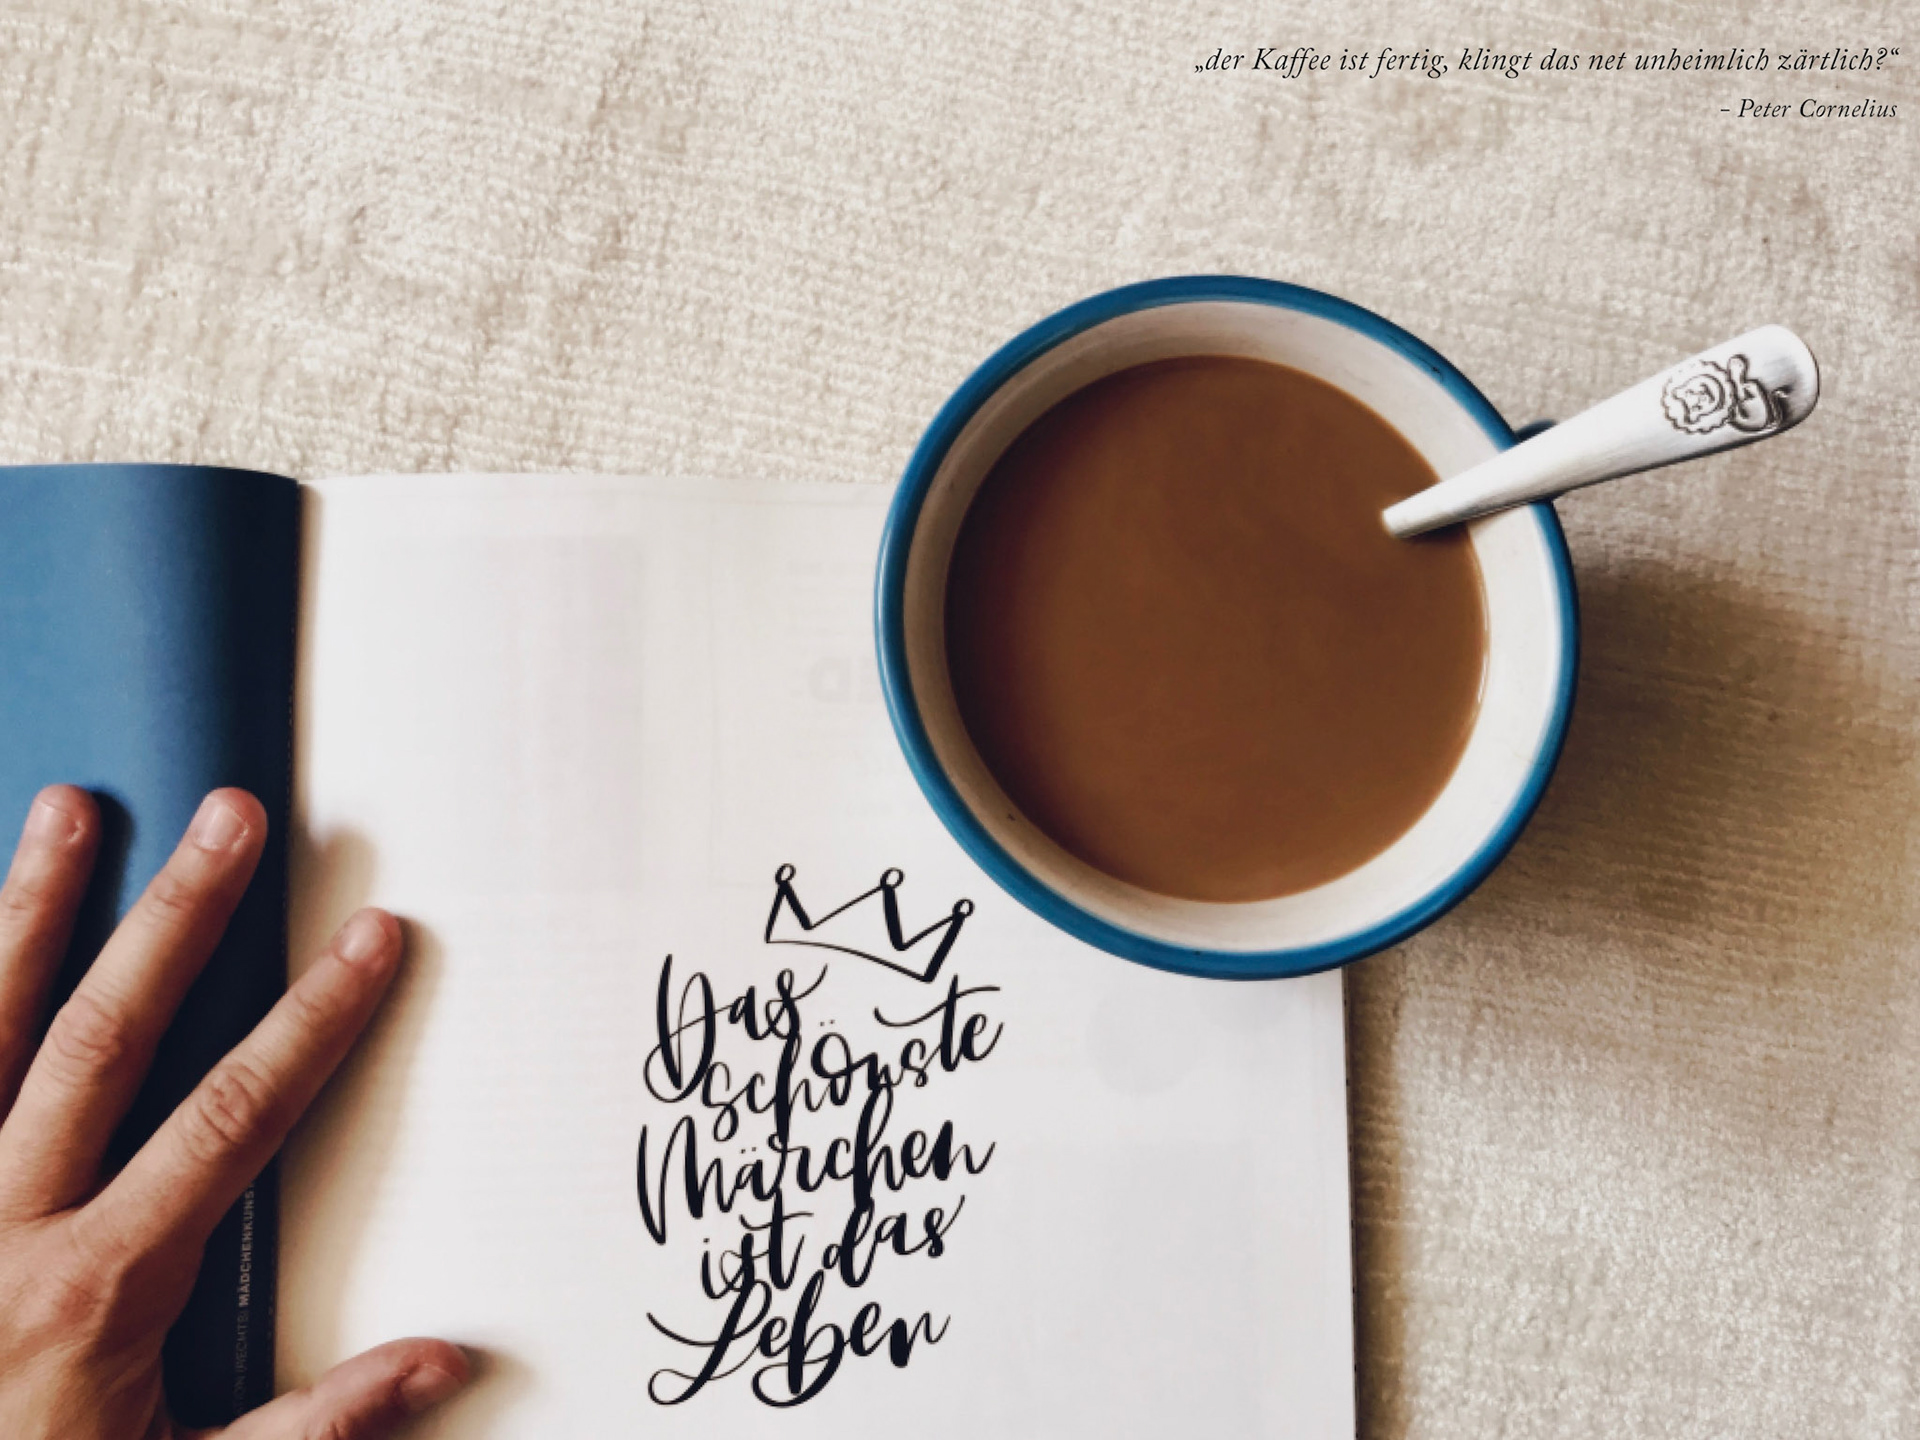 „der Kaffee ist fertig, klingt das net unheimlich zärtlich?“
- Peter Cornelius
Das
schönste
Märchen
ist das
Leben
(RECHTS) MÄDCHENKUNST